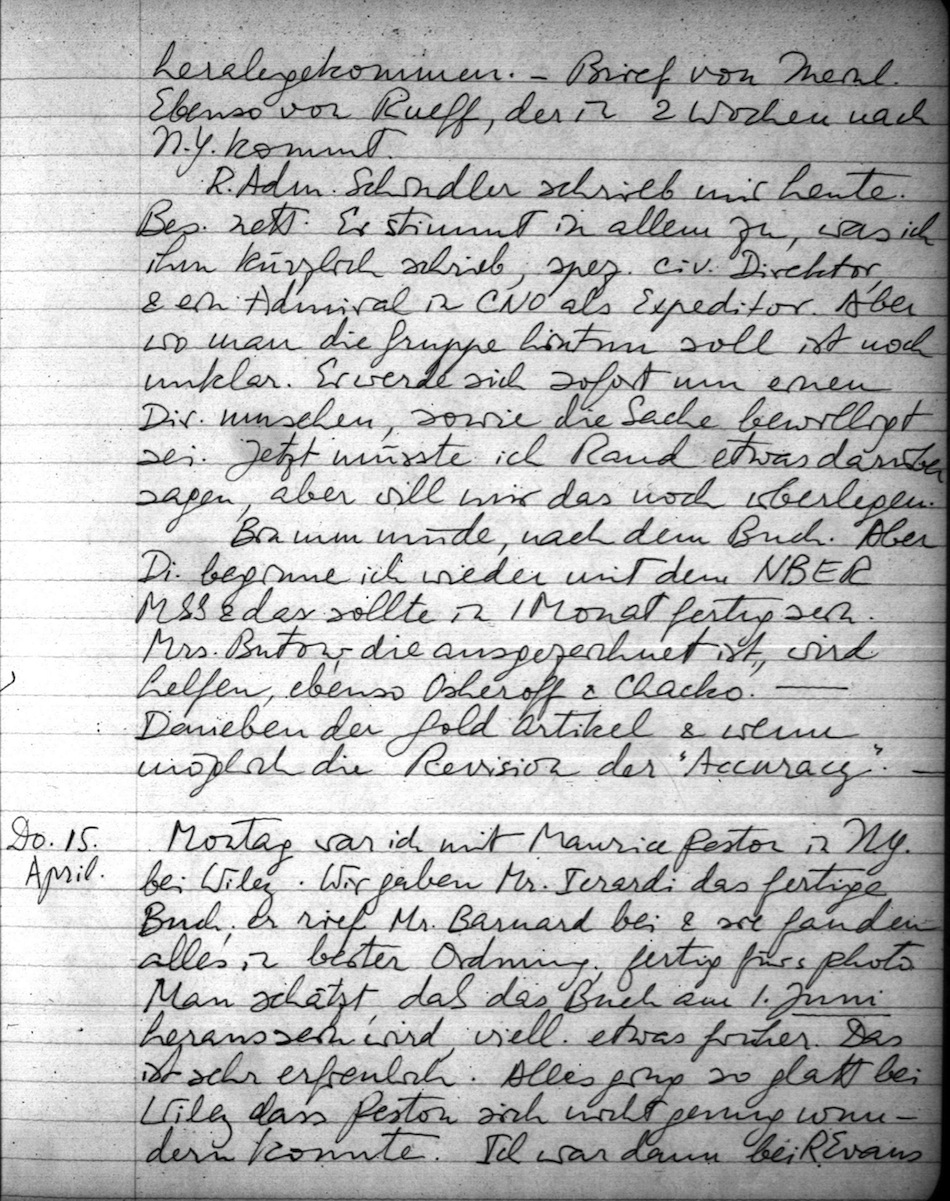 heraufgekommen. – Brief von
Ebenso von Rueff, der in 2 Wochen nach
N.Y. kommt.
R. Adm. Schindler schrieb mir heute.
Bes. nett. Er stimmt in allem zu, was ich
ihm kürzlich schrieb, spez. civ. Direktor,
& ein Admiral in CNO als Expeditor. Aber
wo man die Gruppe hintun soll ist noch
unklar. Er werde sich sofort um einen
Dir. umsehen, sowie die Sache bewilligt
sei. Jetzt müsste ich Rand etwas darüber
sagen, aber will mir das noch überlegen.
Bin nun müde, nach dem Buch. Aber
Di. beginne ich wieder mit dem NBER
MSS & das sollte in 1 Monat fertig sein.
Mrs. Butow, die ausgezeichnet ist, wird
helfen, ebenso Osheroff & Chacko. —
Daneben der Gold Artikel & wenn
möglich die Revision der "Accuracy". —
Do. 15. April.
Montag war ich mit Maurice Peston in NY.
bei Wiley. Wir gaben Mr. Ierardi das fertige
Buch, er rief Mr. Barnard bei & sie fanden
alles in bester Ordnung, fertig fürs photo
Man schätzt, daß das Buch am 1. Juni
heraussein wird, viell. etwas früher. Das
ist sehr erfreulich. Alles ging so glatt bei
Wiley dass Peston sich nicht genug wun-
dern konnte. Ich war dann bei R Evans